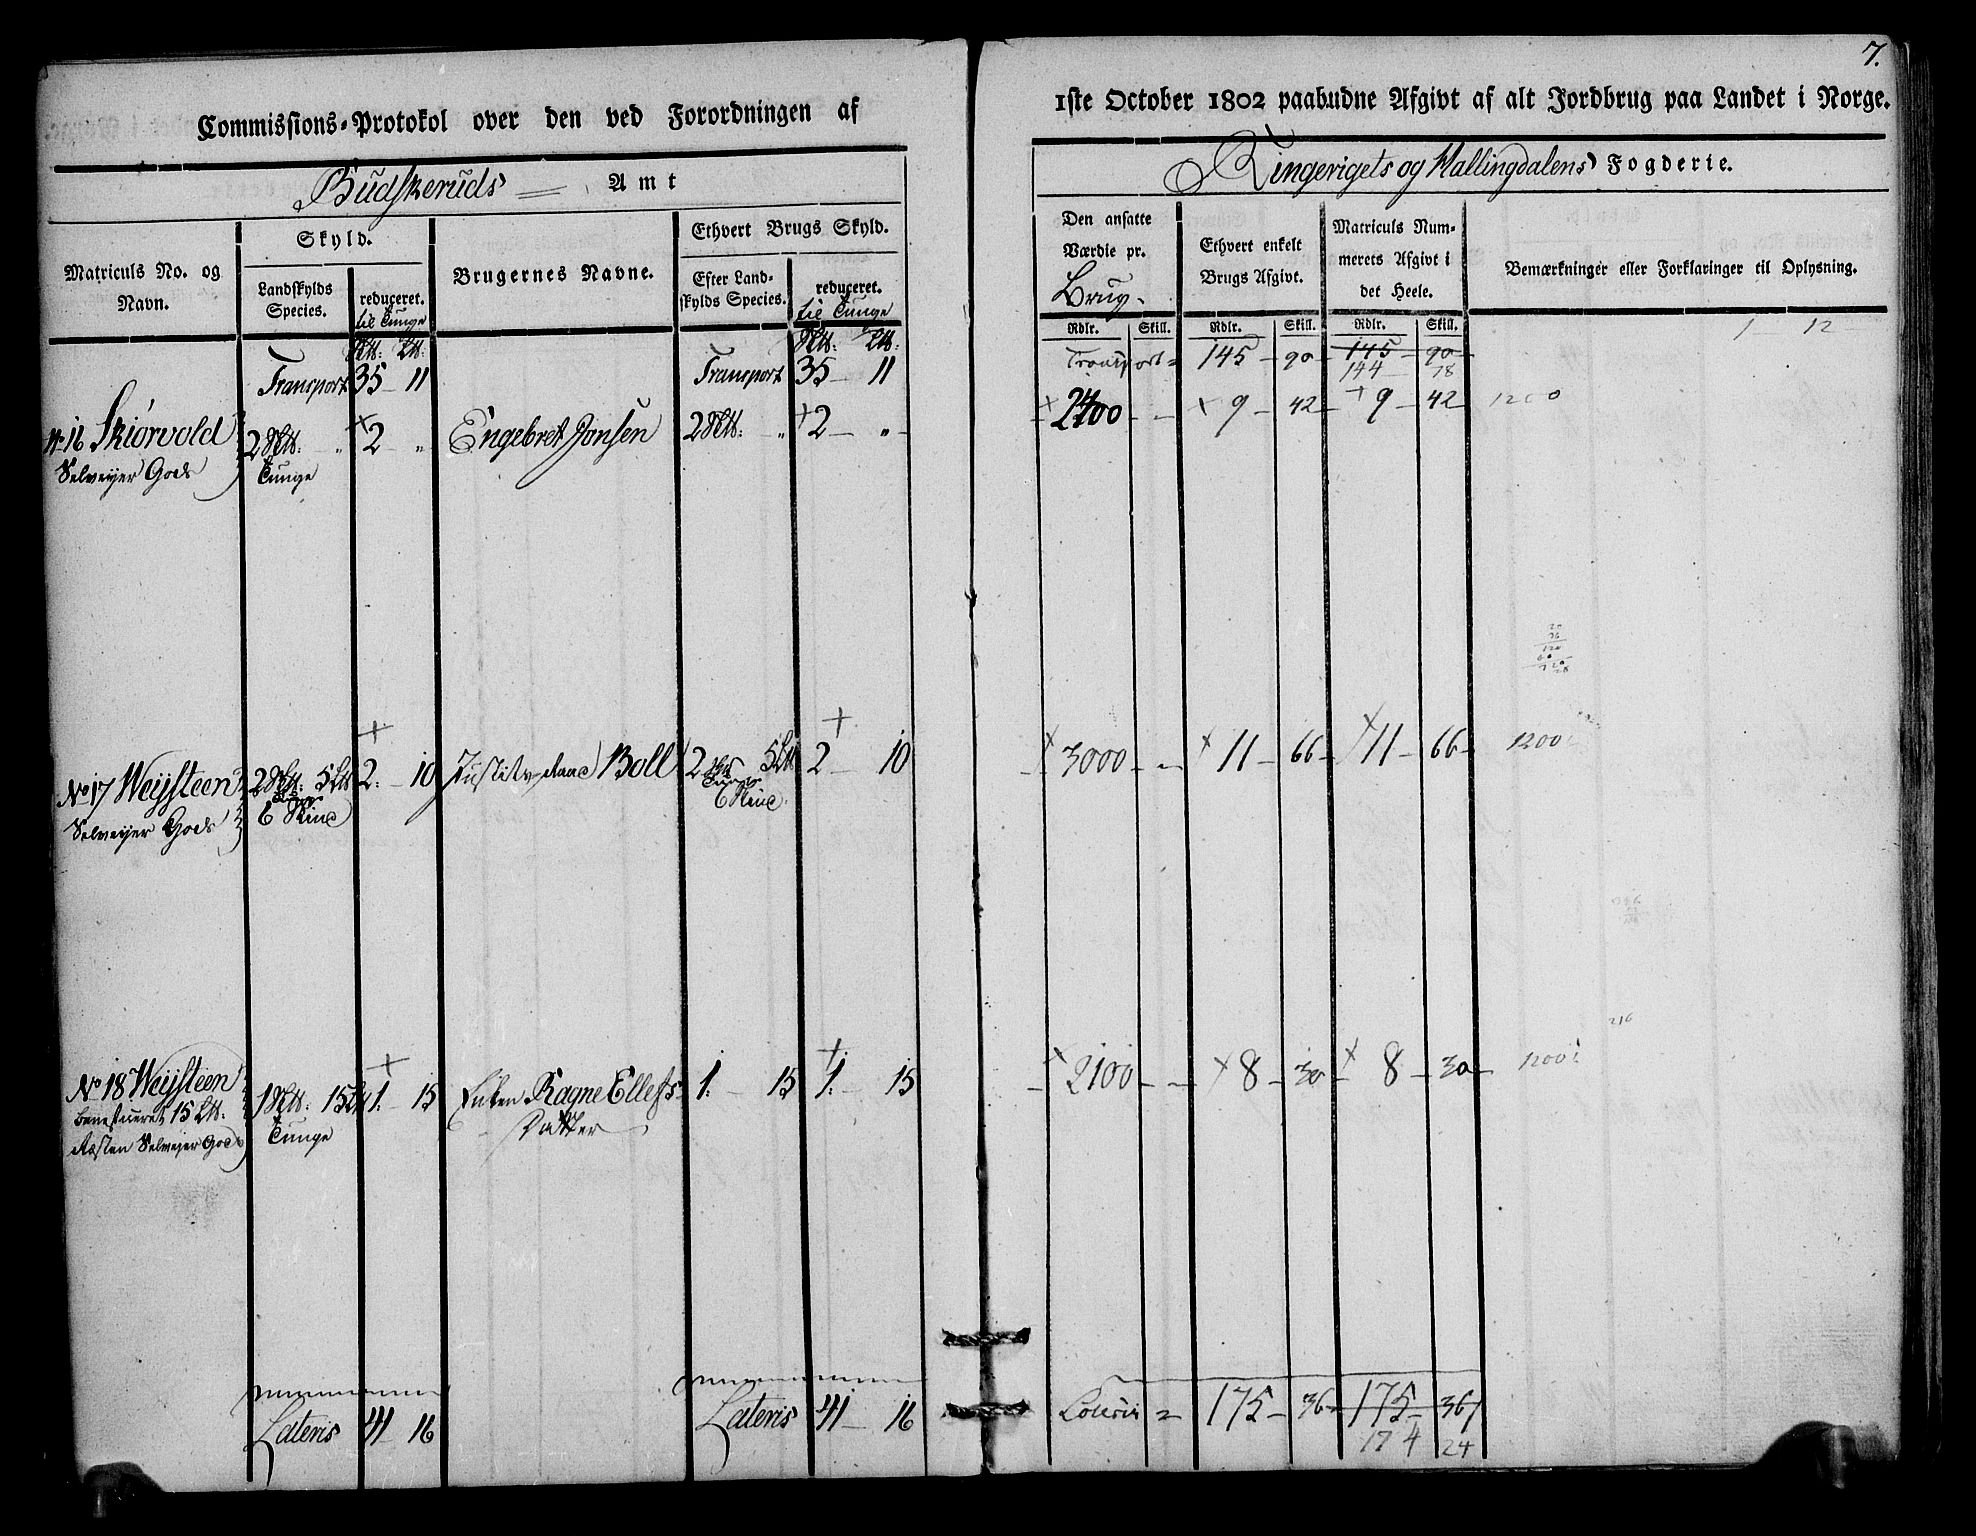 7.
Commissions-Protokol over den ved Forordningen af
1ste October 1802 paabudne Afgivt af alt Jordbrug paa Landet i Norge.
Budskeruds Amt
Ringerigets og Hallingdalens Fogderie.
Matriculs No. og Navn.
Skyld.
Landskylds Species.
reduceret.
til Tunge
Brugernes Navne.
Ethvert Brugs Skyld.
Efter Landskylds Species.
reduceret.
til Tunge
Den ansatte Værdie pr.
Brug.
Ethvert enkelt Brugs Afgivt.
Matriculs Nummerets Afgivt i det Heele.
Bemærkninger eller Forklaringer til Oplysning.
Rdlr. Skill. Rdlr. Skill. Rdlr. Skill.
1 12
Transport 35 - 11 Transport 35 - 11 Transport = 145 - 90 - 145 - 90
144 - 78
No 16 Skiørvold 2 " +2 - " Engebret Jonsen 2 " +2 - " - + 2400 - - + 9 - 42 - + 9 - 42 1200
Selveijer Gods Tunge
No 17 Weijsteen 2 5 2 - 10 Boll 2 5 2 - 10 + 3000 - - + 11 - 66 - + 11 - 66 - 1200
Selveijer Gods
216
No 18 Weijsteen 1 15 1 - 15 Enken Ragne Ellefs- 1 - 15 1 - 15 + 2100 - - + 8 - 30 + 8 - 30 - 1200
beneficeret 15
Resten Selveijer Gods Tunge Datter
Lateris 41 - 16 Lateris 41 - 16 Lateris = 175 - 36 - 175 - 36
174 24